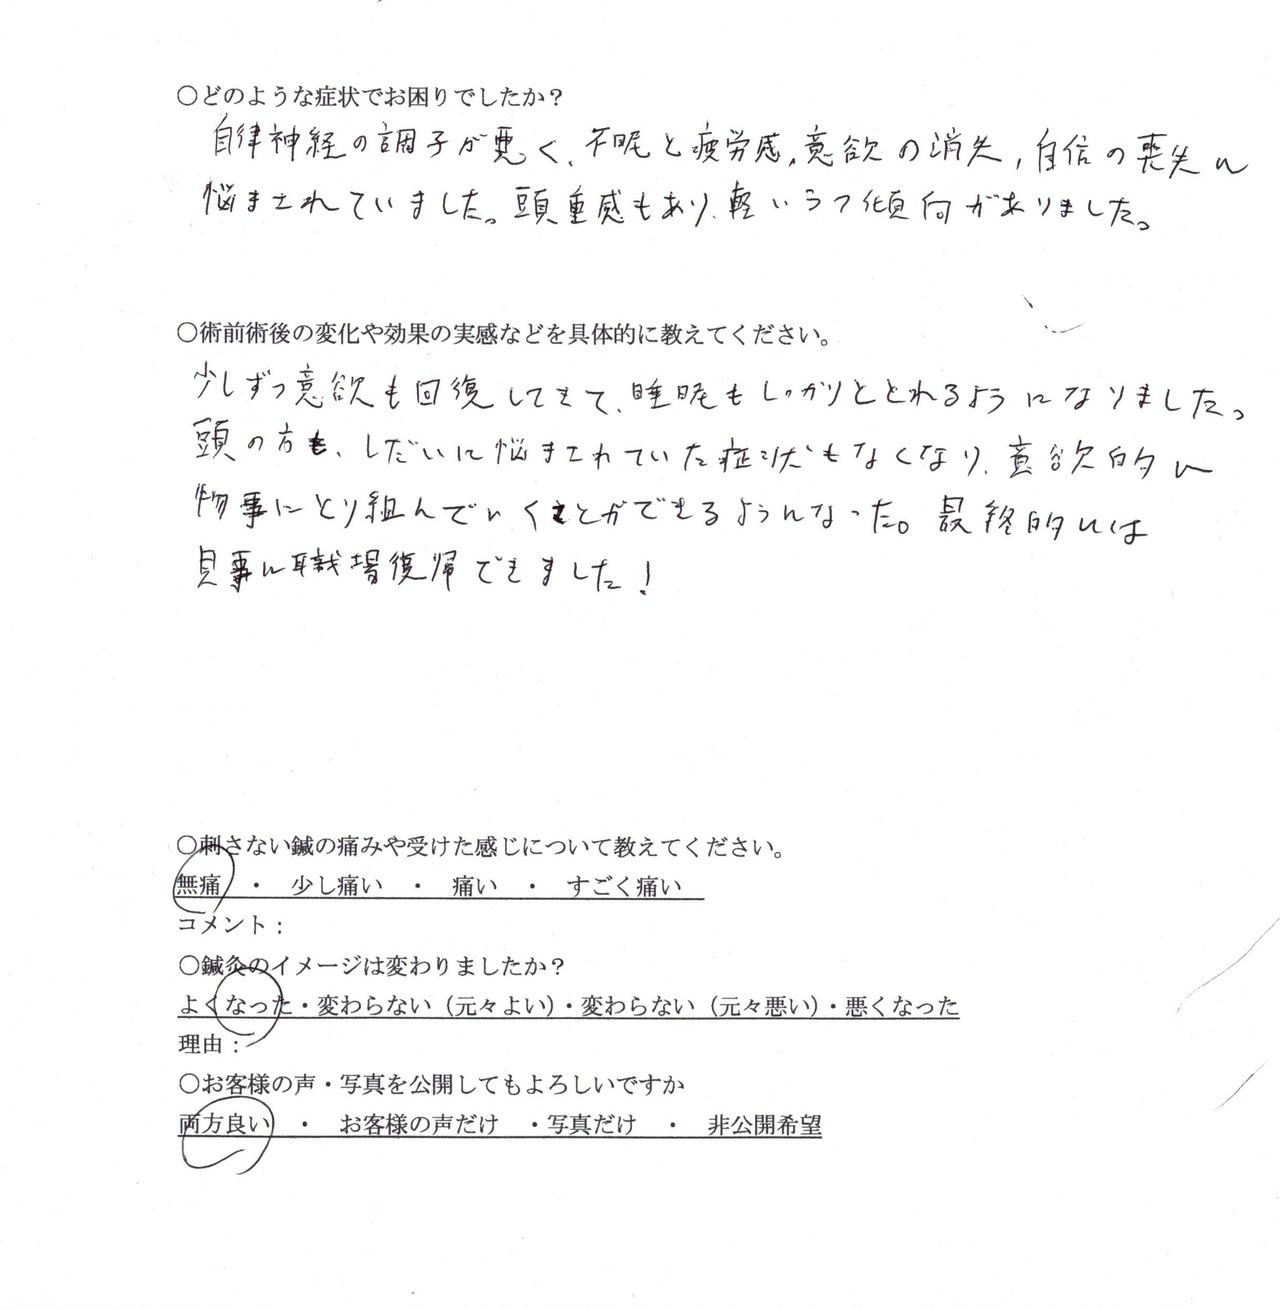 ○どのような症状でお困りでしたか？
自律神経の調子が悪く、不眠と疲労感、意欲の消失、自信の喪失に
悩まされていました。頭重感もあり、軽いうつ傾向がありました。
○術前術後の変化や効果の実感などを具体的に教えてください。
少しずつ意欲も回復してきて、睡眠もしっかりととれるようになりました。
頭の方も、しだいに悩まされていた症状もなくなり、意欲的に
物事にとり組んでいくことができるようになった。最終的には
見事に職場復帰できました！
○刺さない鍼の痛みや受けた感じについて教えてください。
無痛　・　少し痛い　・　痛い　・　すごく痛い
コメント：
○鍼灸のイメージは変わりましたか？
よくなった・変わらない（元々よい）・変わらない（元々悪い）・悪くなった
理由：
○お客様の声・写真を公開してもよろしいですか
両方良い　・　お客様の声だけ　・写真だけ　・　非公開希望